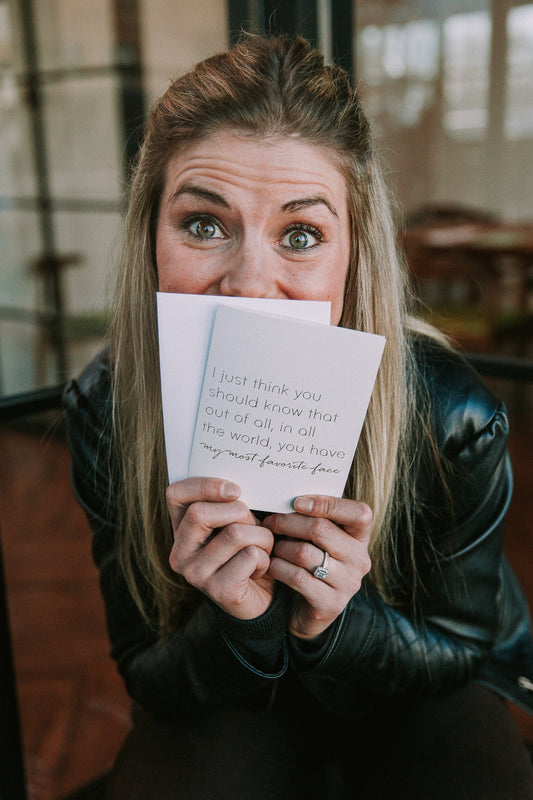 I just think you
should know that
out of all, in all
the world, you have
my most favorite face